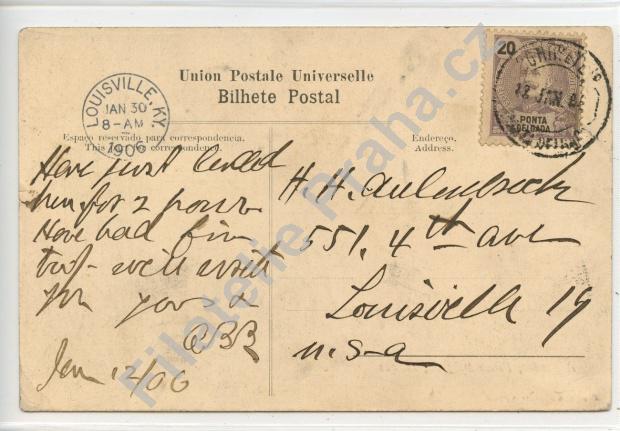 Union Postale Universelle
Bilhete Postal
Espaço reservado para correspondencia.
This space correspondence.
Endereço.
Address.
LOUISVILLE, KY.
JAN 30
8-AM
1906
20
PONTA
DELGADA
CORREIO
12 JAN
Have just landed
here for 2 hours
Have had fine
trip - will write
for you &
CBB
Jan 12/06
H. H.
551, 4th ave
Louisville Ky
U.S.A
Filatelie Praha.cz